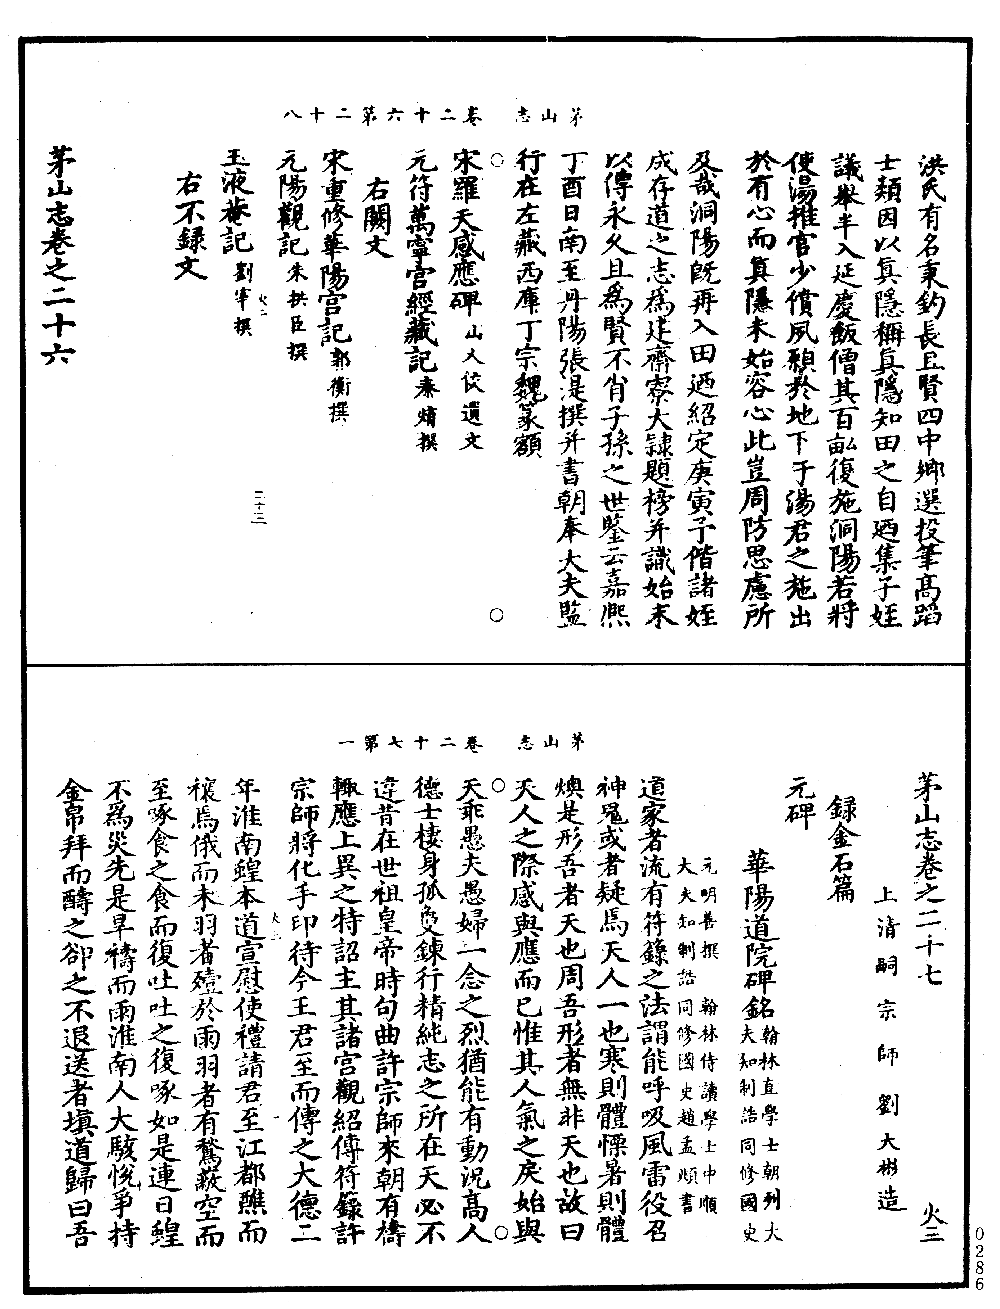 茅山志　卷二十六　第二十八
洪氏有名秉鈞長且賢四中鄉選投筆高蹈
士類因以真隱稱真隱知田之自廼集子姪
議舉半入延慶飯僧其百畝復施洞陽若將
使湯推官少償夙願於地下于湯君之施出
於有心而真隱未始容心此豈周防思慮所
及哉洞陽既再入田廼紹定庚寅予偕諸姪
成存道之志為建齋寮大隸題榜并識始末
以傳永久且為賢不肖子孫之世鑒云嘉熙
丁酉日南至丹陽張湜撰并書朝奉大夫監
行在左藏西庫丁宗魏篆額
宋羅天感應碑山人伩遺文
元符萬寧宮經藏記秦熺撰
右闕文
宋重修華陽宮記郭衡撰
元陽觀記朱拱臣撰
火二
二十三
玉液菴記劉宰撰
右不錄文
茅山志卷之二十六
茅山志　卷二十七　第一
茅山志卷之二十七　火三
上清嗣宗師劉大彬造
錄金石篇
元碑
華陽道院碑銘翰林直學士朝列大夫知制誥同修國史
元明善撰　翰林侍讀學士中順
大夫知制誥同修國史趙孟頫書
道家者流有符籙之法謂能呼吸風雷役召
神鬼或者疑焉天人一也寒則體慄暑則體
燠是形吾者天也周吾形者無非天也故曰
天人之際感與應而已惟其人氣之戾始與
天乖愚夫愚婦一念之烈猶能有動況高人
德士棲身孤敻鍊行精純志之所在天必不
違昔在世祖皇帝時句曲許宗師來朝有禱
輒應上異之特詔主其諸宮觀紹傳符籙許
宗師將化手印待今王君至而傳之大德二
火三
年淮南蝗本道宣慰使禮請君至江都醮而
禳焉俄而未羽者殪於雨羽者有鶖蔽空而
至啄食之食而復吐吐之復啄如是連日蝗
不為災先是旱禱而雨淮南人大駭悅爭持
金帛拜而醻之卻之不退送者填道歸曰吾
0286